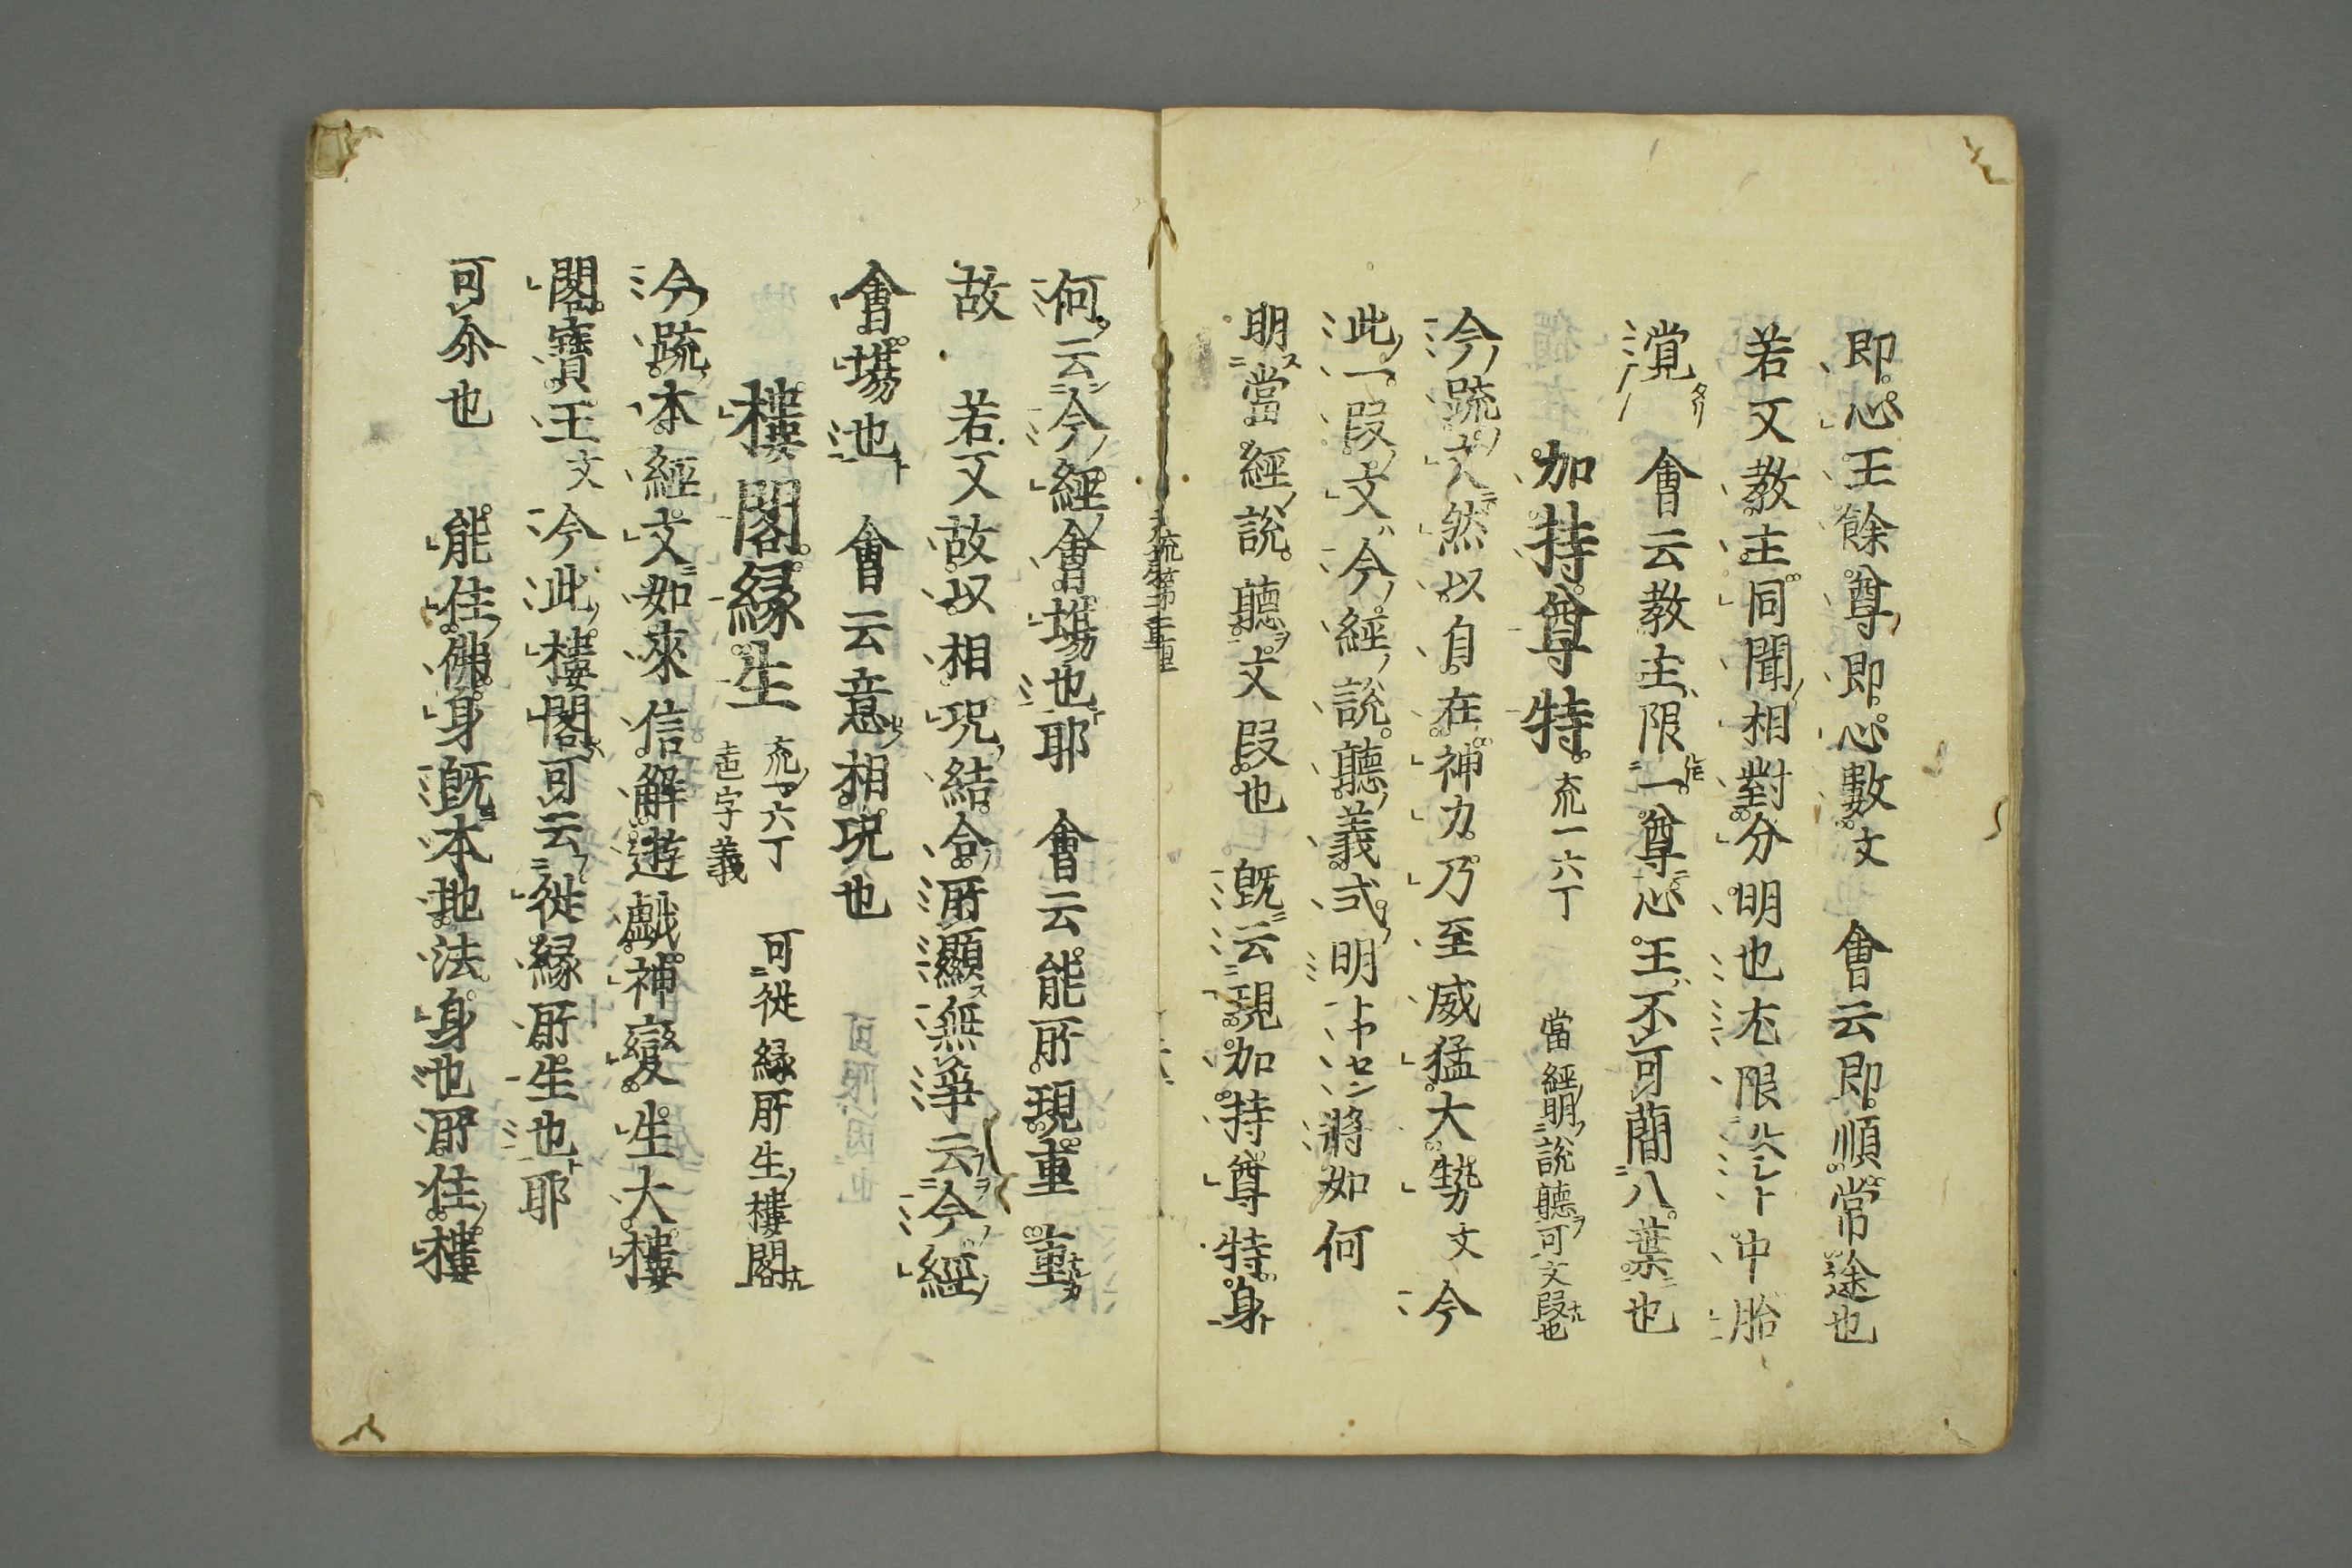 即心王餘尊即心數文　會云即順常途也
若又教主同聞相對分明也尤限ルヘシト中胎
覚タリ　會云教主限一尊心王不可蕳八葉也
加持尊特　疏一六丁　當經明說聽可文段也
今疏文然以自在神力乃至威猛大勢文今
此一段文今經說聽義式明トヤセン將如何
明當經說聽文段也　既云現加持尊特身
大疏第三重
何云今經會場也耶　會云能所現重重
故　若又故以相況結会所顯無准云今經
會場也　會云意相況也
樓閣縁生　疏一六丁　𠮷字義　可從縁所生樓閣
今疏本經文如來信解遊戯神變生大樓
閣寶王文今此樓閣可云從縁所生也耶
可尒也　能住佛身既本地法身也所住樓